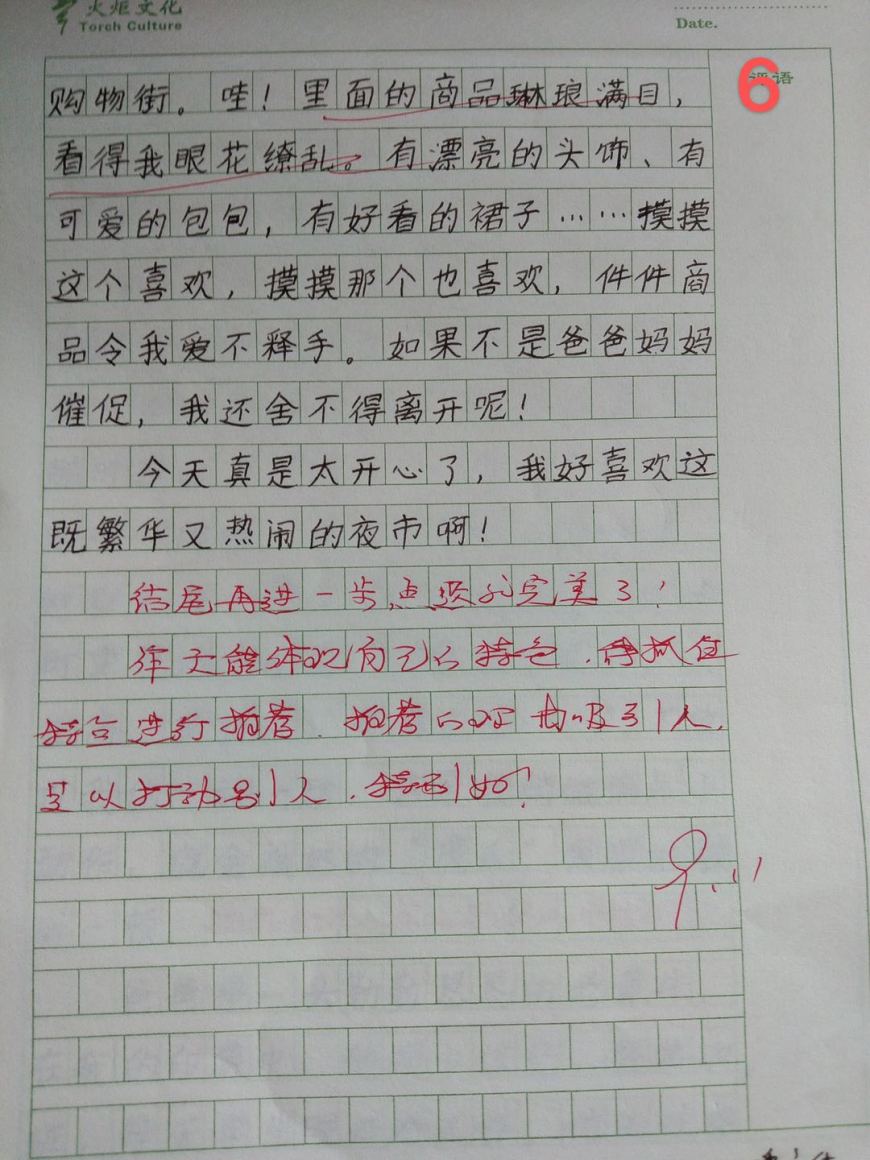 火炬文化
Torch Culture
Date.
评语
6
购物街。哇！里面的商品琳琅满目，
看得我眼花缭乱。有漂亮的头饰、有
可爱的包包，有好看的裙子……摸摸
这个喜欢，摸摸那个也喜欢，件件商
品令我爱不释手。如果不是爸爸妈妈
催促，我还舍不得离开呢！
今天真是太开心了，我好喜欢这
既繁华又热闹的夜市啊！
结尾再进一步点题就完美了！
特色，抓住
特色进行推荐，推荐
足以打动别人，特别好！